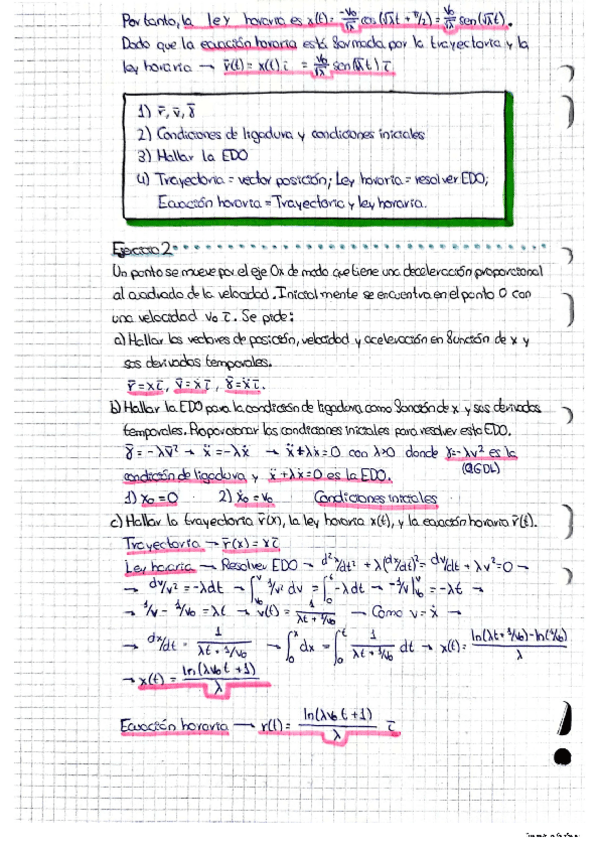 Por tanto, la ley horaria es x(t) = -v₀/√λ cos(√λt + π/2) = v₀/√λ sen(√λt).
Dado que la ecuación horaria está formada por la trayectoria y la
ley horaria → r̄(t) = x(t) ī = v₀/√λ sen(√λt) ī
1) r̄, v̄, γ̄
2) Condiciones de ligadura y condiciones iniciales
3) Hallar la EDO
4) Trayectoria = vector posición; Ley horaria = resolver EDO;
Ecuación horaria = Trayectoria y ley horaria.
Ejercicio 2
Un punto se mueve por el eje Ox de modo que tiene una deceleración proporcional
al cuadrado de la velocidad. Inicialmente se encuentra en el punto O con
una velocidad v₀ ī. Se pide:
a) Hallar los vectores de posición, velocidad y aceleración en función de x y
sus derivadas temporales.
r̄ = xī, v̄ = ẋī, γ̄ = ẍī.
b) Hallar la EDO para la condición de ligadura como función de x y sus derivadas
temporales. Proporcionar las condiciones iniciales para resolver esta EDO.
γ̄ = -λv̄² → ẍ = -λẋ → ẍ + λẋ = 0 con λ>0 donde γ = -λv² es la
condición de ligadura y ẍ + λẋ = 0 es la EDO. (1GDL)
1) x₀ = 0 2) ẋ₀ = v₀ Condiciones iniciales
c) Hallar la trayectoria r̄(x), la ley horaria x(t), y la ecuación horaria r̄(t).
Trayectoria → r̄(x) = xī
Ley horaria → Resolver EDO → d²x/dt² + λ(dx/dt)² = dv/dt + λv² = 0 →
→ dv/v² = -λdt → ∫_{v₀}^{v} 1/v² dv = ∫_{0}^{t} -λdt → -1/v|_{v₀}^{v} = -λt →
→ 1/v - 1/v₀ = λt → v(t) = 1/(λt + 1/v₀) → Como v = ẋ →
→ dx/dt = 1/(λt + 1/v₀) → ∫_{0}^{x} dx = ∫_{0}^{t} 1/(λt + 1/v₀) dt → x(t) = (ln(λt + 1/v₀) - ln(1/v₀))/λ
→ x(t) = ln(λv₀t + 1)/λ
Ecuación horaria → r(t) = ln(λv₀t + 1)/λ ī